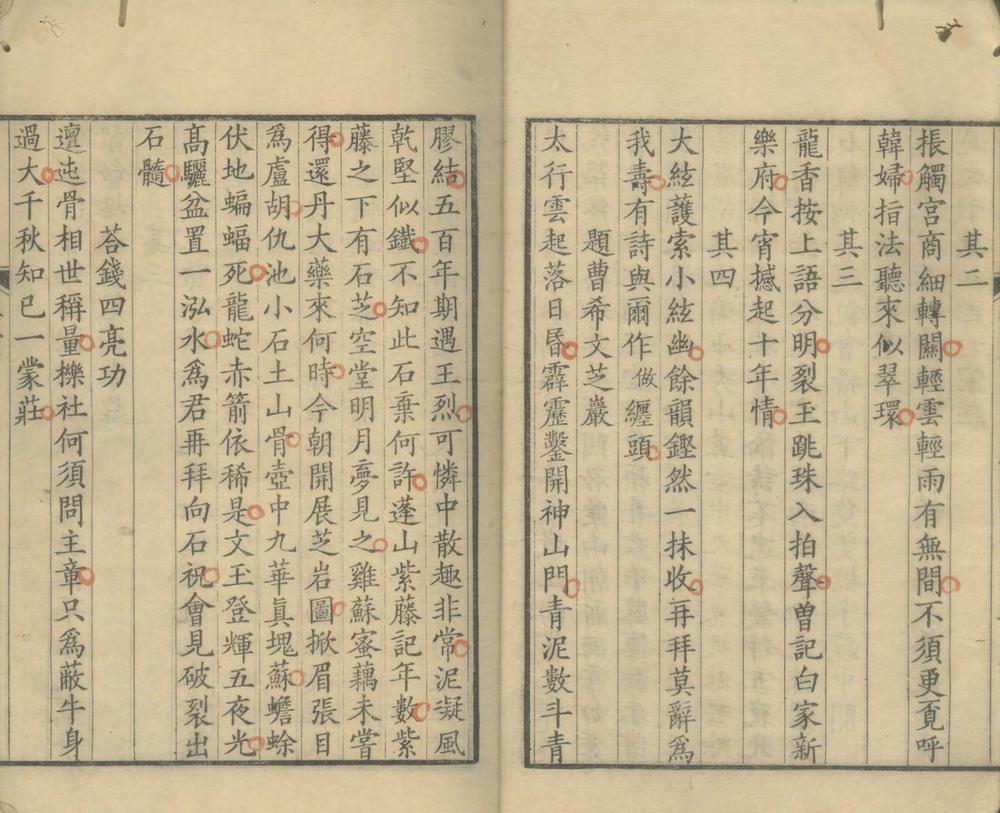 其二
掁觸宫商細轉關輕雲輕雨有無間不須更覓呼
韓婦指法聽來似翠環
其三
龍香按上語分明裂玉跳珠入拍聲曽記白家新
樂府今宵撼起十年情
其四
大絃䕶索小絃幽餘韻鏗然一抹收再拜莫辭爲
我壽有詩與爾作做纒頭
題曹希文芝巖
太行雲起落日昏霹靂鑿開神山門青泥數斗青
膠結五百年期遇王烈可憐中散趣非常泥凝風
乾堅似鐵不知此石棄何許蓬山紫藤記年數紫
藤之下有石芝空堂明月夢見之雞蘇蜜藕未嘗
得還丹大藥來何時今朝開展芝岩圖掀眉張目
爲盧胡仇池小石土山骨壺中九華眞塊蘇蟾蜍
伏地蝙蝠死龍蛇赤箭依稀是文玉登輝五夜光
高驪盆置一泓水爲君再拜向石祝會見破裂出
石髓
荅錢四亮功
邅迍骨相世稱量櫟社何須問主章只爲蔽牛身
過大千秋知已一蒙莊